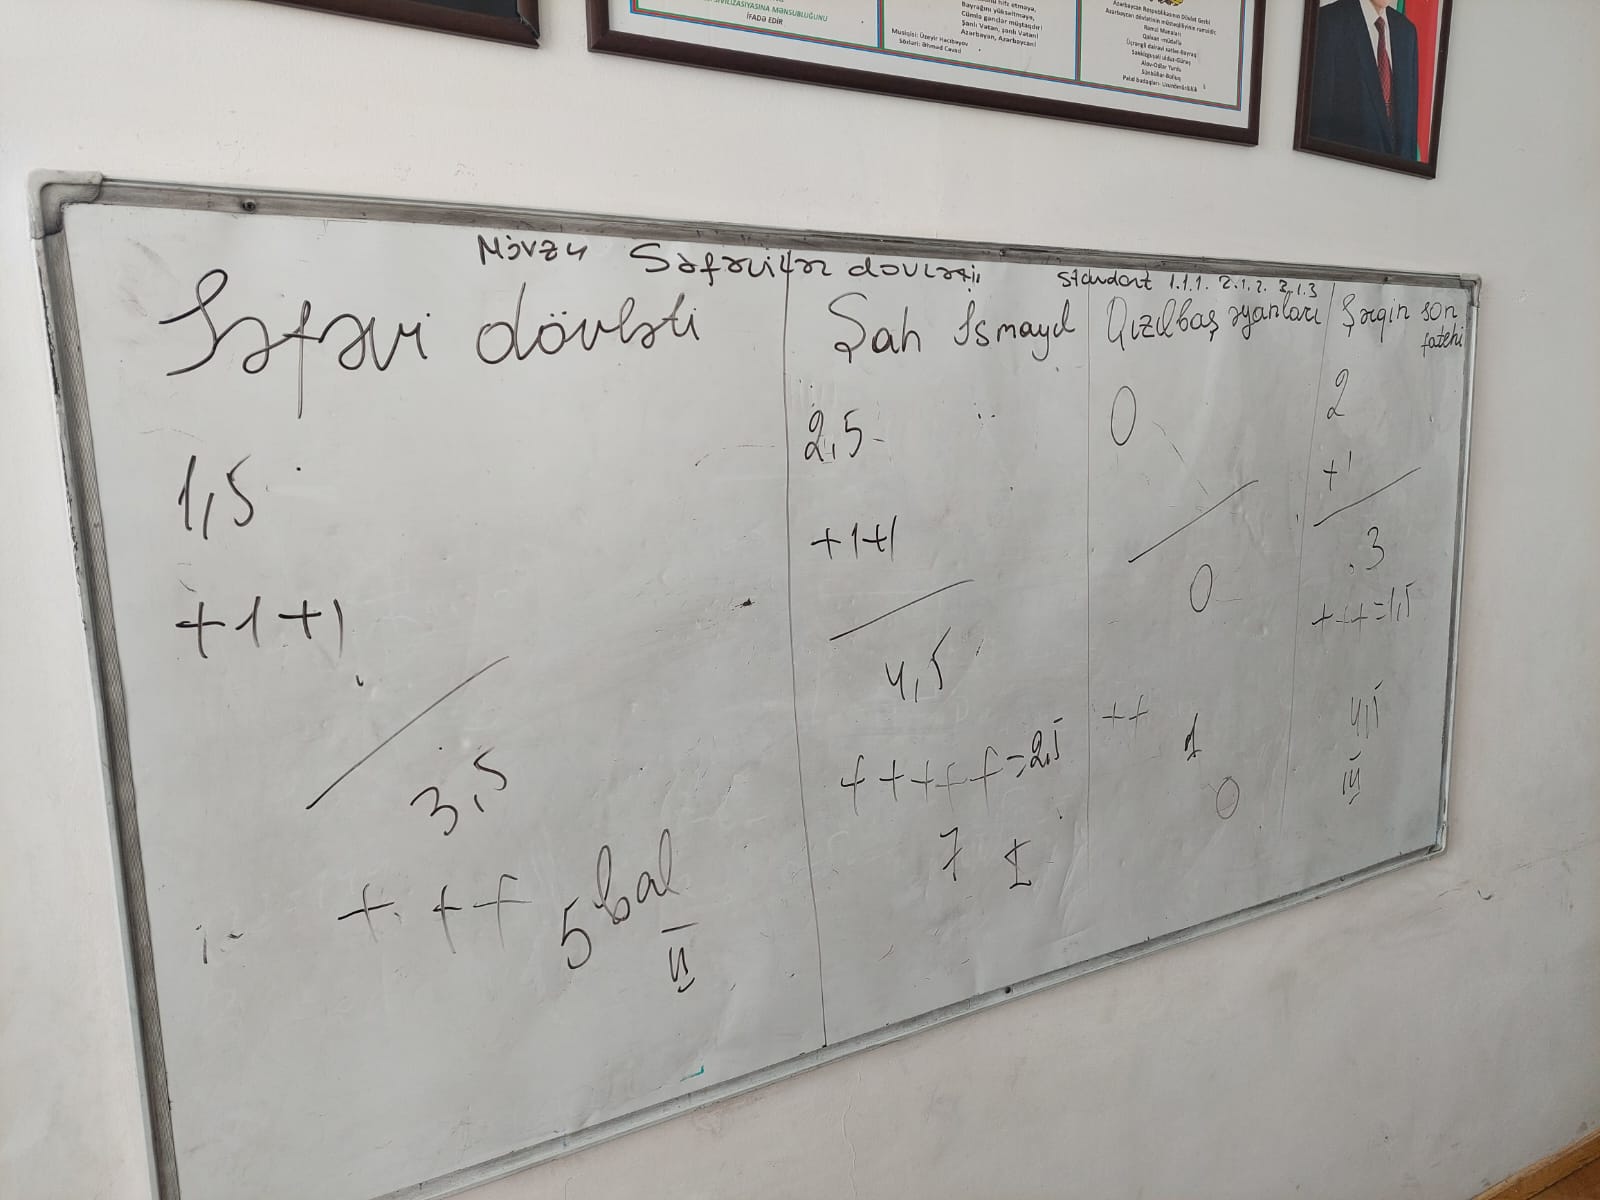 SİVİLİZASİYASINA MƏNSUBLUĞUNU
İFADƏ EDİR
Bayrağını yüksəltməyə,
Cümlə gənclər müştaqdır!
Şanlı Vətən, şanlı Vətən!
Azərbaycan, Azərbaycan!
Musiqisi: Üzeyir Hacıbəyov
Sözləri: Əhməd Cavad
Azərbaycan Respublikasının Dövlət Gerbi
Azərbaycan dövlətinin müstəqilliyinin rəmzidir.
Mövzu Səfəvilər dövləti,
Standart 1.1.1. 2.1.2. 3.1.3
Səfəvi dövləti
1,5
+1+1
3,5
+ + + 5 bal
II
Şah İsmayıl
2,5
+1+1
4,5
+ + + + + = 2,5
7 I
Qızılbaş əyanları
0
0
++ 1
0
Şərqin son
fatehi
2
+1
3
+++=1,5
4,5
III